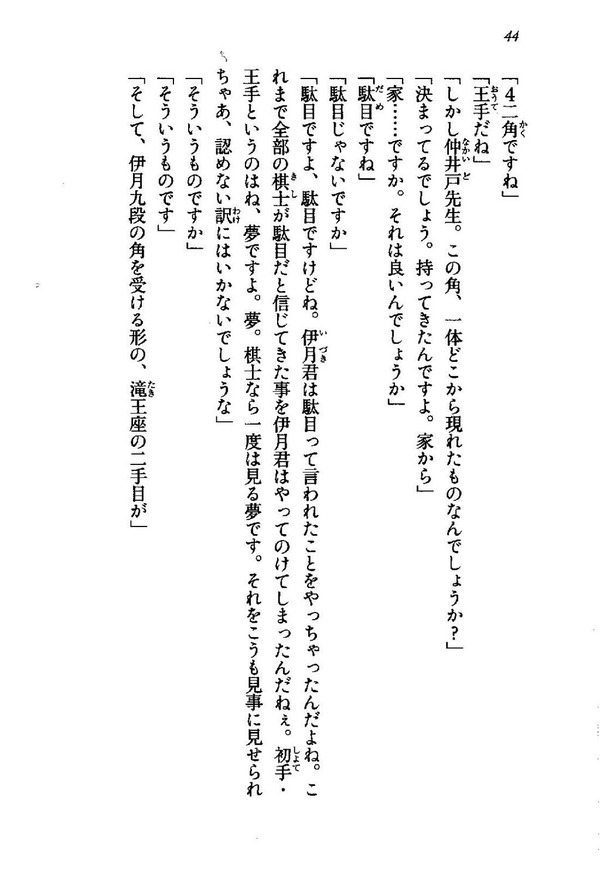 44
「４二角ですね」
「王手だね」
「しかし仲井戸先生。この角、一体どこから現れたものなんでしょうか？」
「決まってるでしょう。持ってきたんですよ。家から」
「家……ですか。それは良いんでしょうか」
「駄目ですね」
「駄目じゃないですか」
「駄目ですよ、駄目ですけどね。伊月君は駄目って言われたことをやっちゃったんだよね。こ
れまで全部の棋士が駄目だと信じてきた事を伊月君はやってのけてしまったんだねぇ。初手・
王手というのはね、夢ですよ。夢。棋士なら一度は見る夢です。それをこうも見事に見せられ
ちゃあ、認めない訳にはいかないでしょうな」
「そういうものですか」
「そういうものです」
「そして、伊月九段の角を受ける形の、滝王座の二手目が」